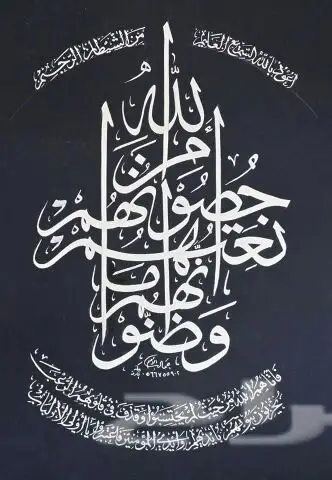 أعوذ بالله السميع العليم من الشيطان الرجيم
وظنوا أنهم مانعتهم حصونهم من الله
فأتاهم الله من حيث لم يحتسبوا وقذف في قلوبهم الرعب
يخربون بيوتهم بأيديهم وأيدي المؤمنين فاعتبروا يا أولي الأبصار